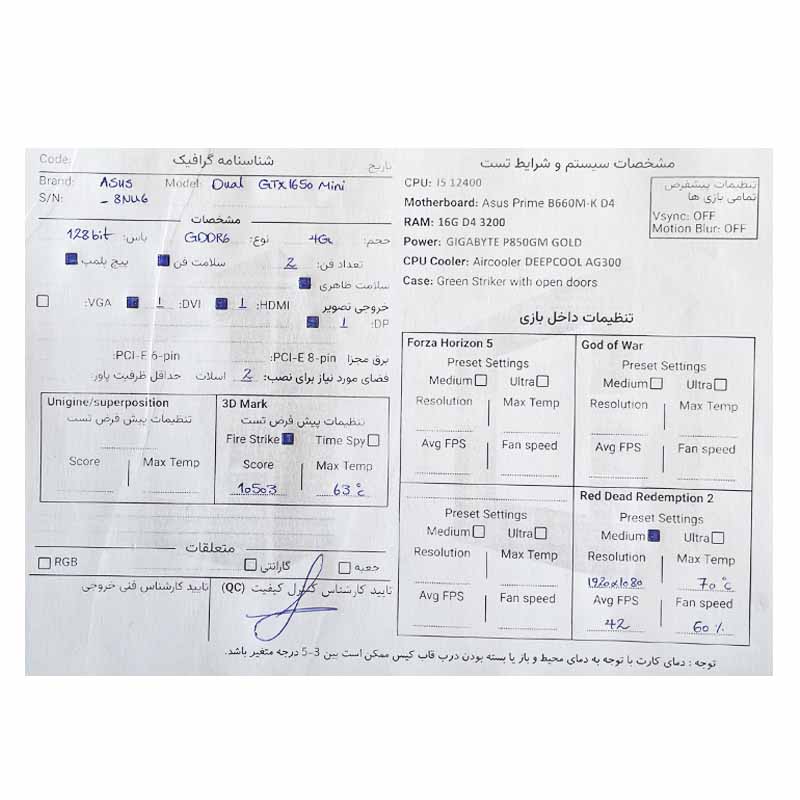 Code: شناسنامه گرافیک تاریخ
Brand: Asus Model: Dual GTX1650 Mini
S/N: _ 8NU6
مشخصات
حجم: 4G نوع: GDDR6 باس: 128bit
تعداد فن: 2 سلامت فن پیچ پلمپ
سلامت ظاهری
خروجی تصویر HDMI: 1 DVI: 1 VGA:
DP: 1
برق مجزا PCI-E 8-pin: PCI-E 6-pin:
فضای مورد نیاز برای نصب: 2 اسلات حداقل ظرفیت پاور:
Unigine/superposition
تنظیمات پیش فرض تست
Score Max Temp
3D Mark
تنظیمات پیش فرض تست
Fire Strike Time Spy
Score Max Temp
10503 63°c
متعلقات
جعبه گارانتی RGB
تایید کارشناس کنترل کیفیت (QC) تایید کارشناس فنی خروجی
مشخصات سیستم و شرایط تست
CPU: I5 12400
Motherboard: Asus Prime B660M-K D4
RAM: 16G D4 3200
Power: GIGABYTE P850GM GOLD
CPU Cooler: Aircooler DEEPCOOL AG300
Case: Green Striker with open doors
تنظیمات پیشفرض
تمامی بازی ها
Vsync: OFF
Motion Blur: OFF
تنظیمات داخل بازی
Forza Horizon 5
Preset Settings
Medium Ultra
Resolution Max Temp
Avg FPS Fan speed
God of War
Preset Settings
Medium Ultra
Resolution Max Temp
Avg FPS Fan speed
Preset Settings
Medium Ultra
Resolution Max Temp
Avg FPS Fan speed
Red Dead Redemption 2
Preset Settings
Medium Ultra
Resolution Max Temp
1920x1080 70°c
Avg FPS Fan speed
42 60%
توجه : دمای کارت با توجه به دمای محیط و باز یا بسته بودن درب قاب کیس ممکن است بین 3-5 درجه متغیر باشد.